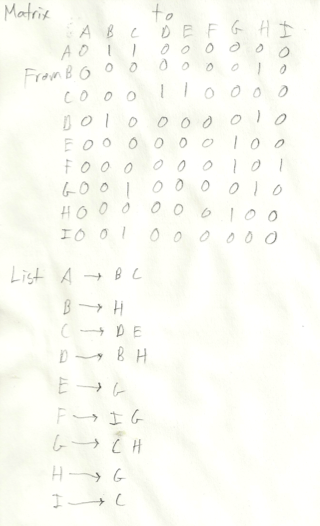 Matrix to
A B C D E F G H I
A 0 1 1 0 0 0 0 0 0
From B 0 0 0 0 0 0 0 1 0
C 0 0 0 1 1 0 0 0 0
D 0 1 0 0 0 0 0 1 0
E 0 0 0 0 0 0 1 0 0
F 0 0 0 0 0 0 1 0 1
G 0 0 1 0 0 0 0 1 0
H 0 0 0 0 0 0 1 0 0
I 0 0 1 0 0 0 0 0 0
List A → B C
B → H
C → D E
D → B H
E → G
F → I G
G → C H
H → G
I → C